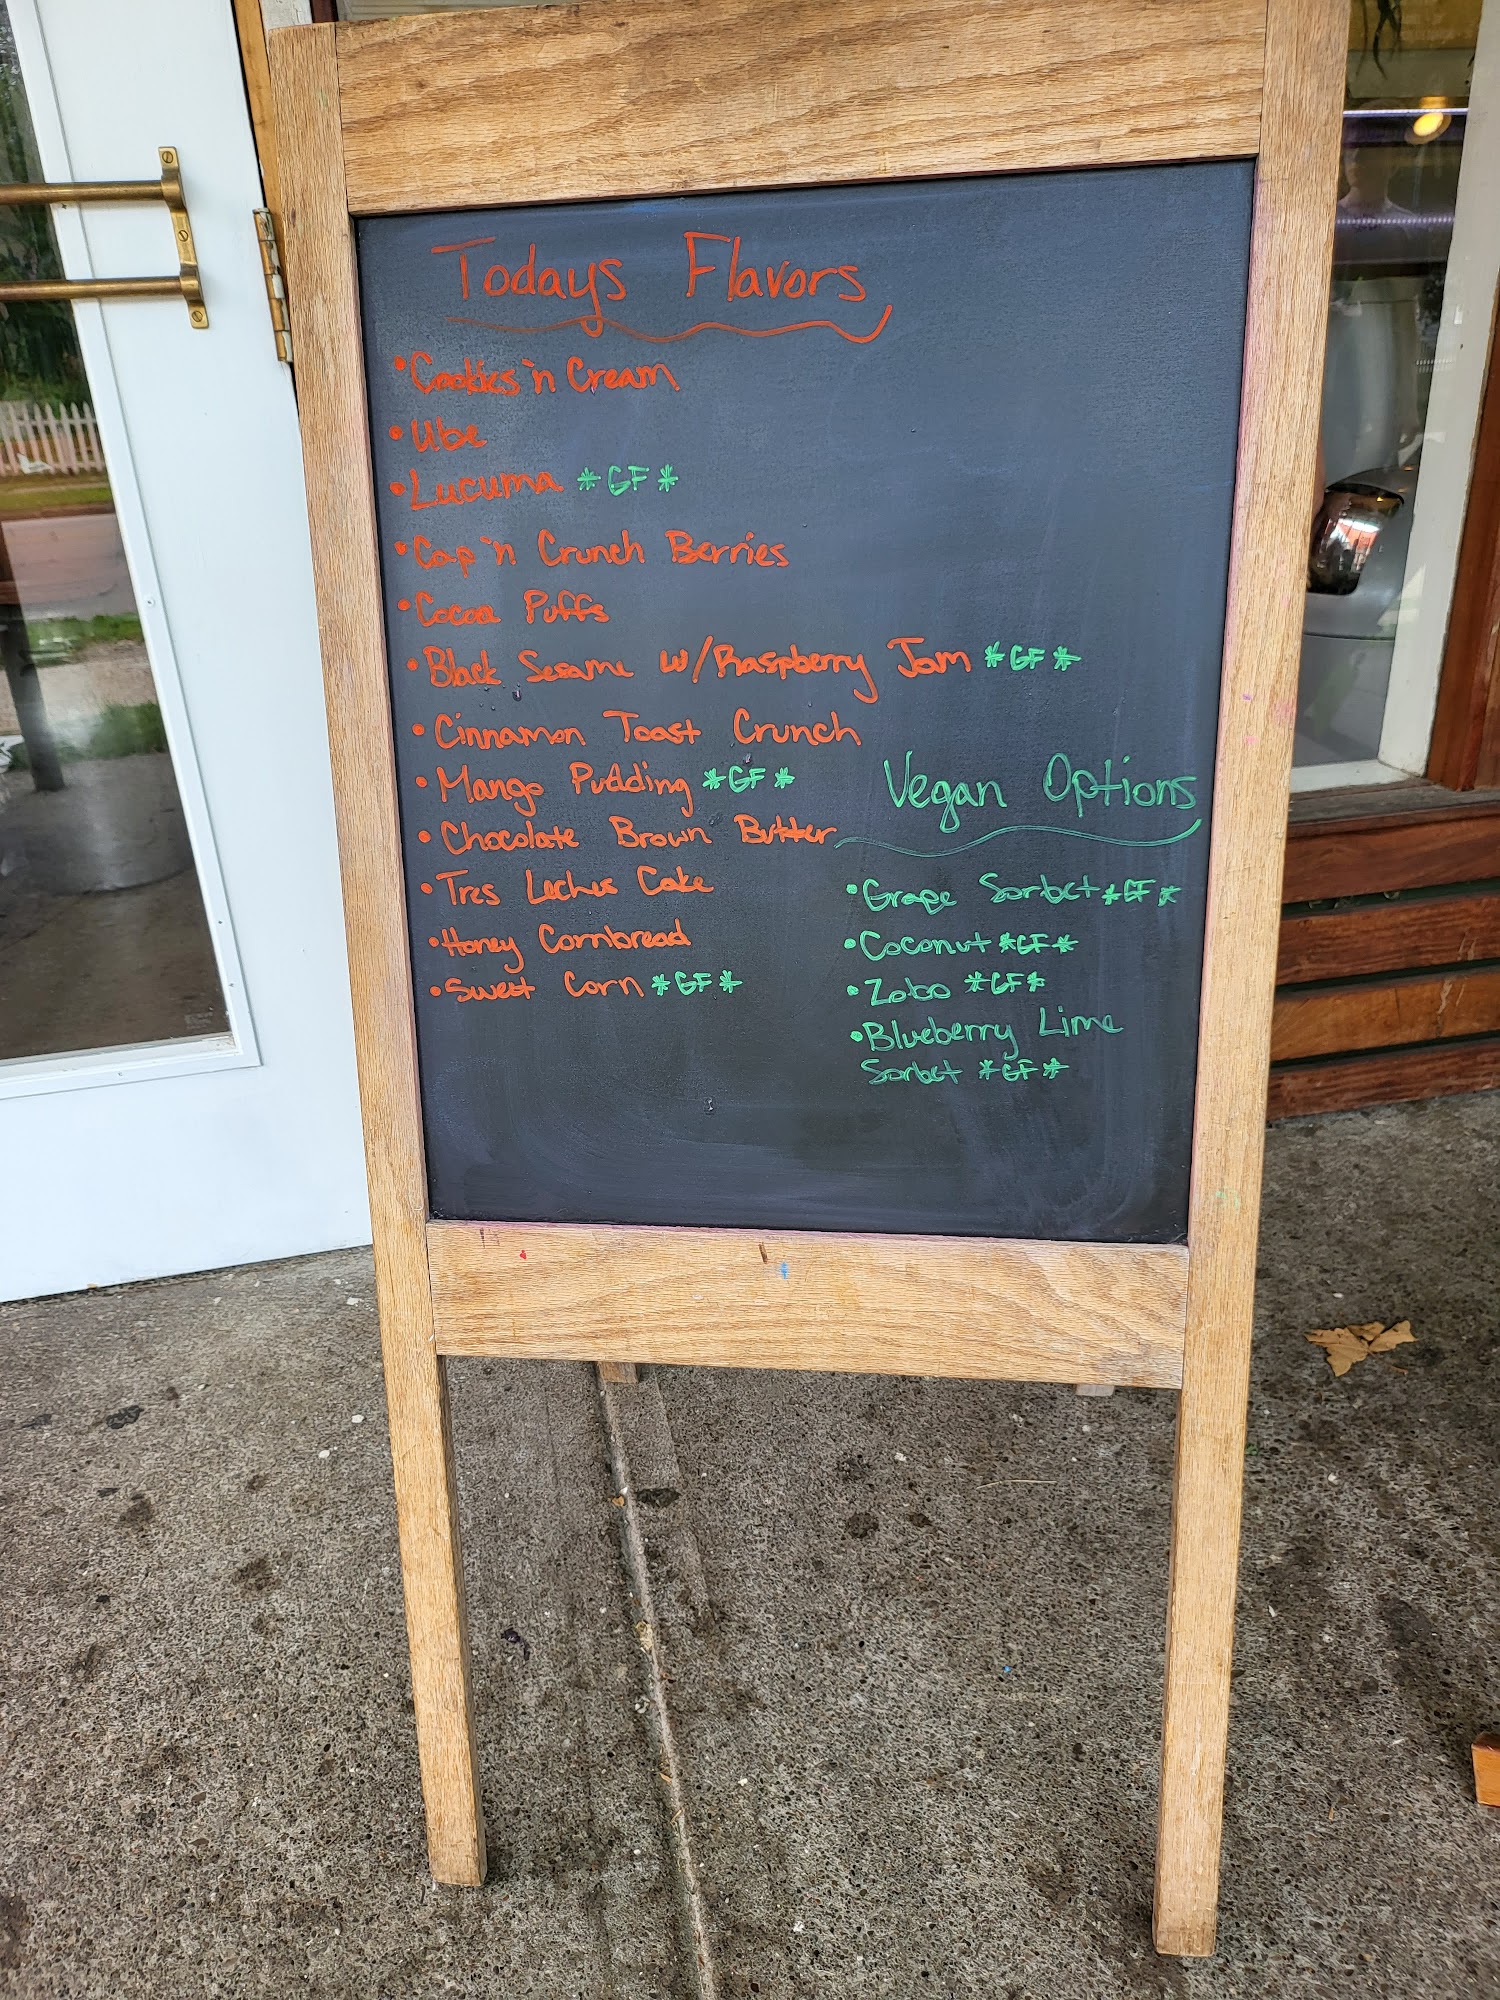 Todays Flavors
• Cookies 'n Cream
• Ube
• Lucuma *GF*
• Cap 'n Crunch Berries
• Cocoa Puffs
• Black Sesame w/Raspberry Jam *GF*
• Cinnamon Toast Crunch
• Mango Pudding *GF*
• Chocolate Brown Butter
• Tres Leches Cake
• Honey Cornbread
• Sweet Corn *GF*
Vegan Options
• Grape Sorbet *GF*
• Coconut *GF*
• Zobo *GF*
• Blueberry Lime
Sorbet *GF*